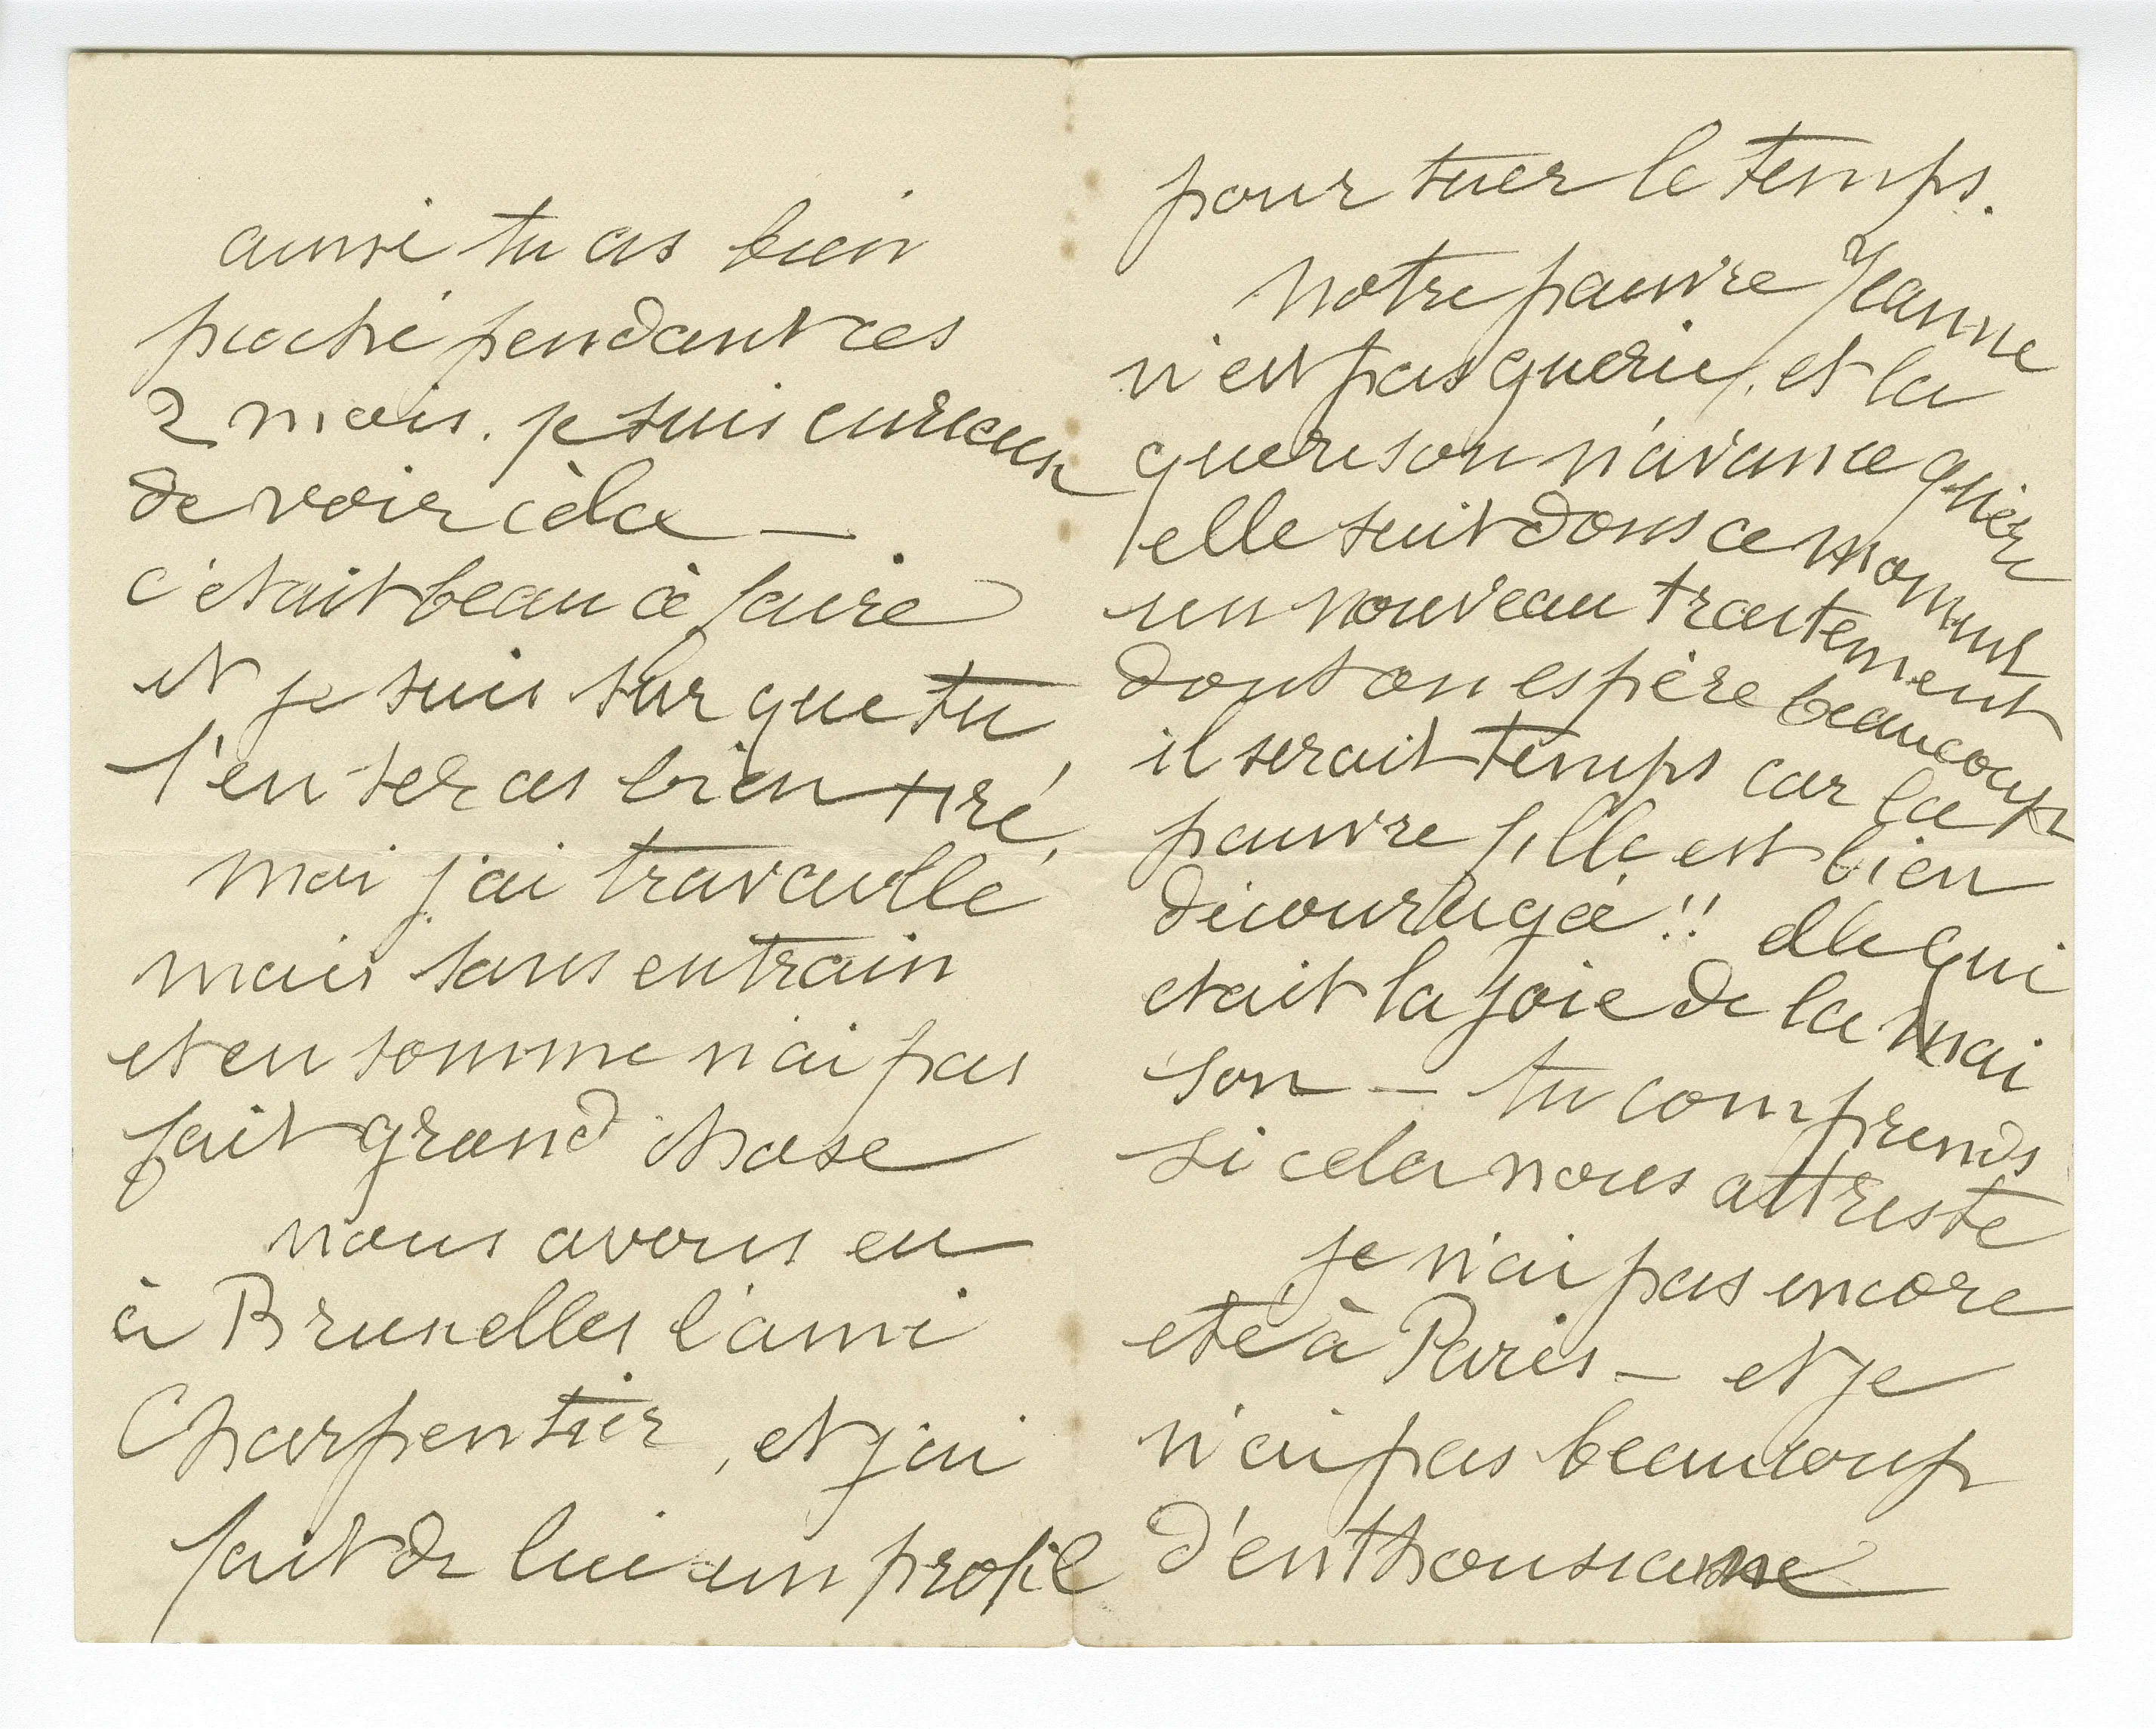 ainsi tu as bien
pioché pendant ces
2 mois. je suis curieux
de voir cèla —
c'etait beau à faire
et je suis sur que tu
t'en seras bien tiré,
moi j'ai travaillé
mais sans entrain
et en somme n'ai pas
fait grand chose
nous avons eu
à Bruxelles l'ami
Charpentier, et j'ai
fait de lui un profil
pour tuer le temps.
notre pauvre Jeanne
n'est pas guérie, et la
guerison n'avance guère
elle suit dons ce moment
un nouveau traitement
dont on espère beaucoup
il serait temps car la
pauvre fille est bien
découragé!! elle qui
etait la joie de la mai
son — tu comprends
si cela nous attriste
je n'ai pas encore
eté à Paris — et je
n'ai pas beaucoup
d'enthousiasme